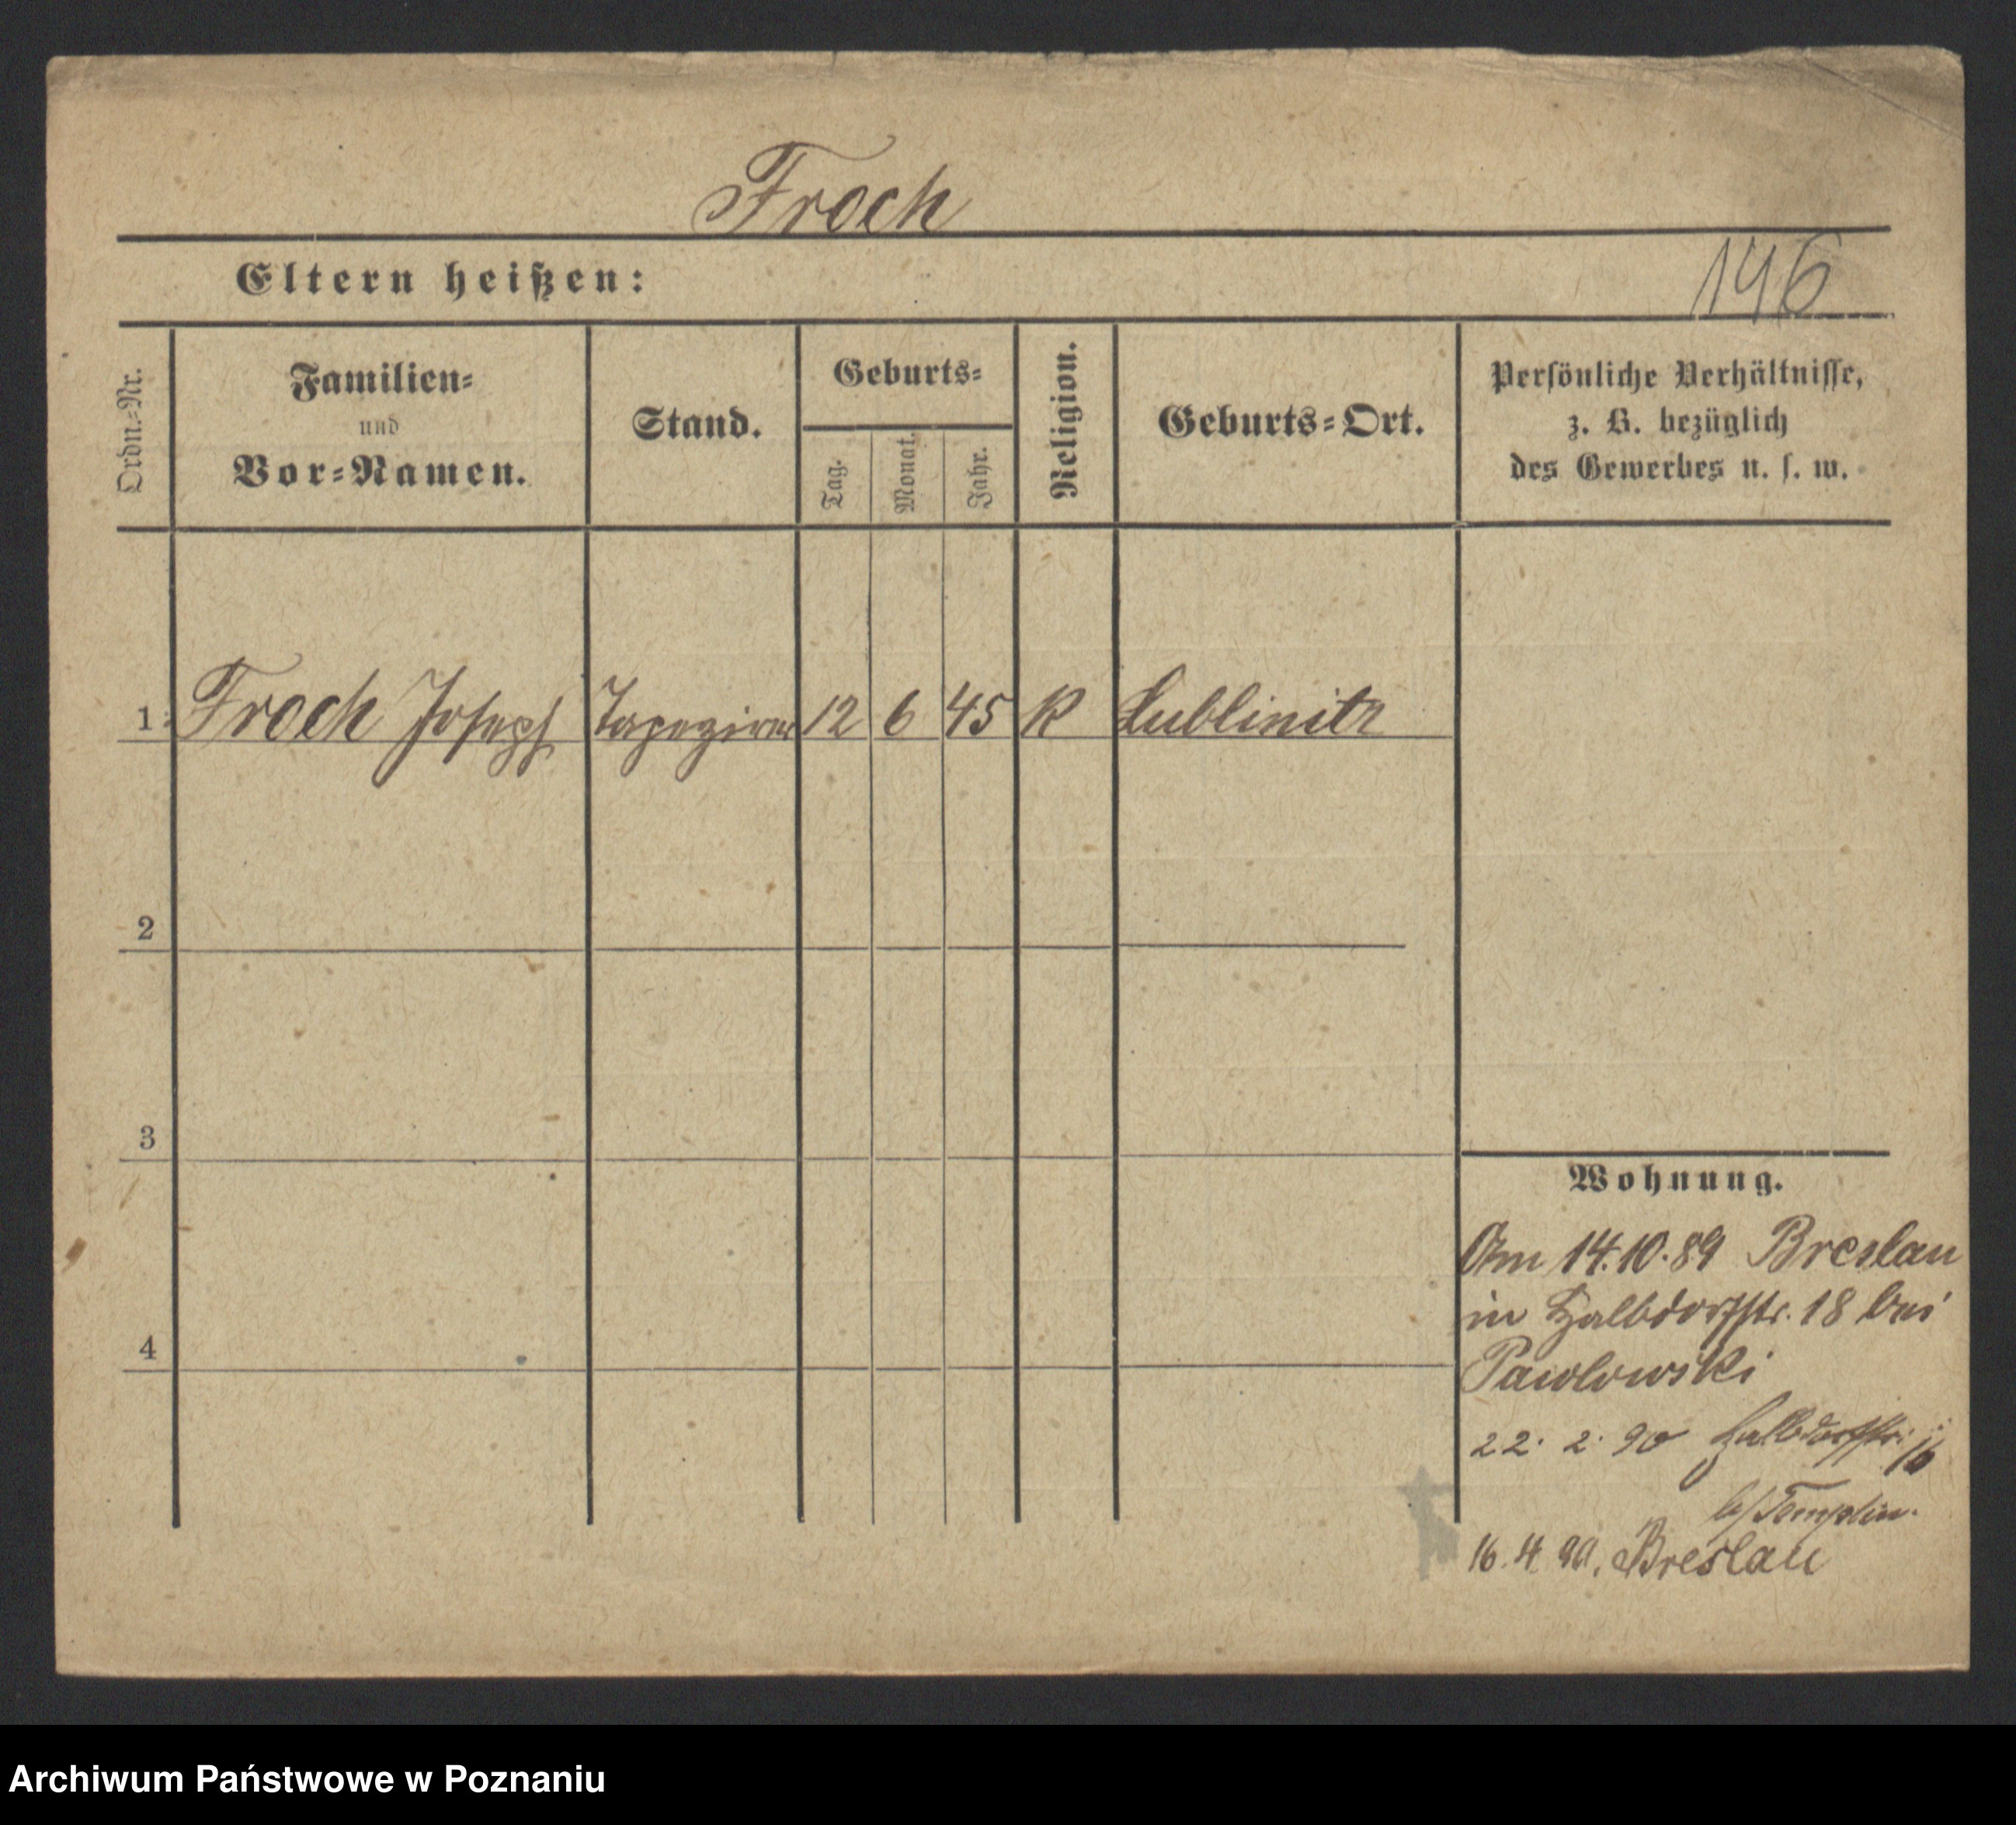 Froch
Eltern heißen:
146
Ordn.=Nr.
Familien=
und
Vor=Namen.
Stand.
Geburts=
Tag.
Monat.
Jahr.
Religion.
Geburts=Ort.
Persönliche Verhältnisse,
z. B. bezüglich
des Gewerbes u. s. w.
1 Froch Joseph Tapezirer 12 6 45 K Lublinitz
2
3
4
Wohnung.
Am 14.10.89 Breslau
in Halbdorfstr. 18 bei
Pawlowski
22. 2. 90 Halbdorfstr. 16
b/Templin.
16.4.90. Breslau
Archiwum Państwowe w Poznaniu